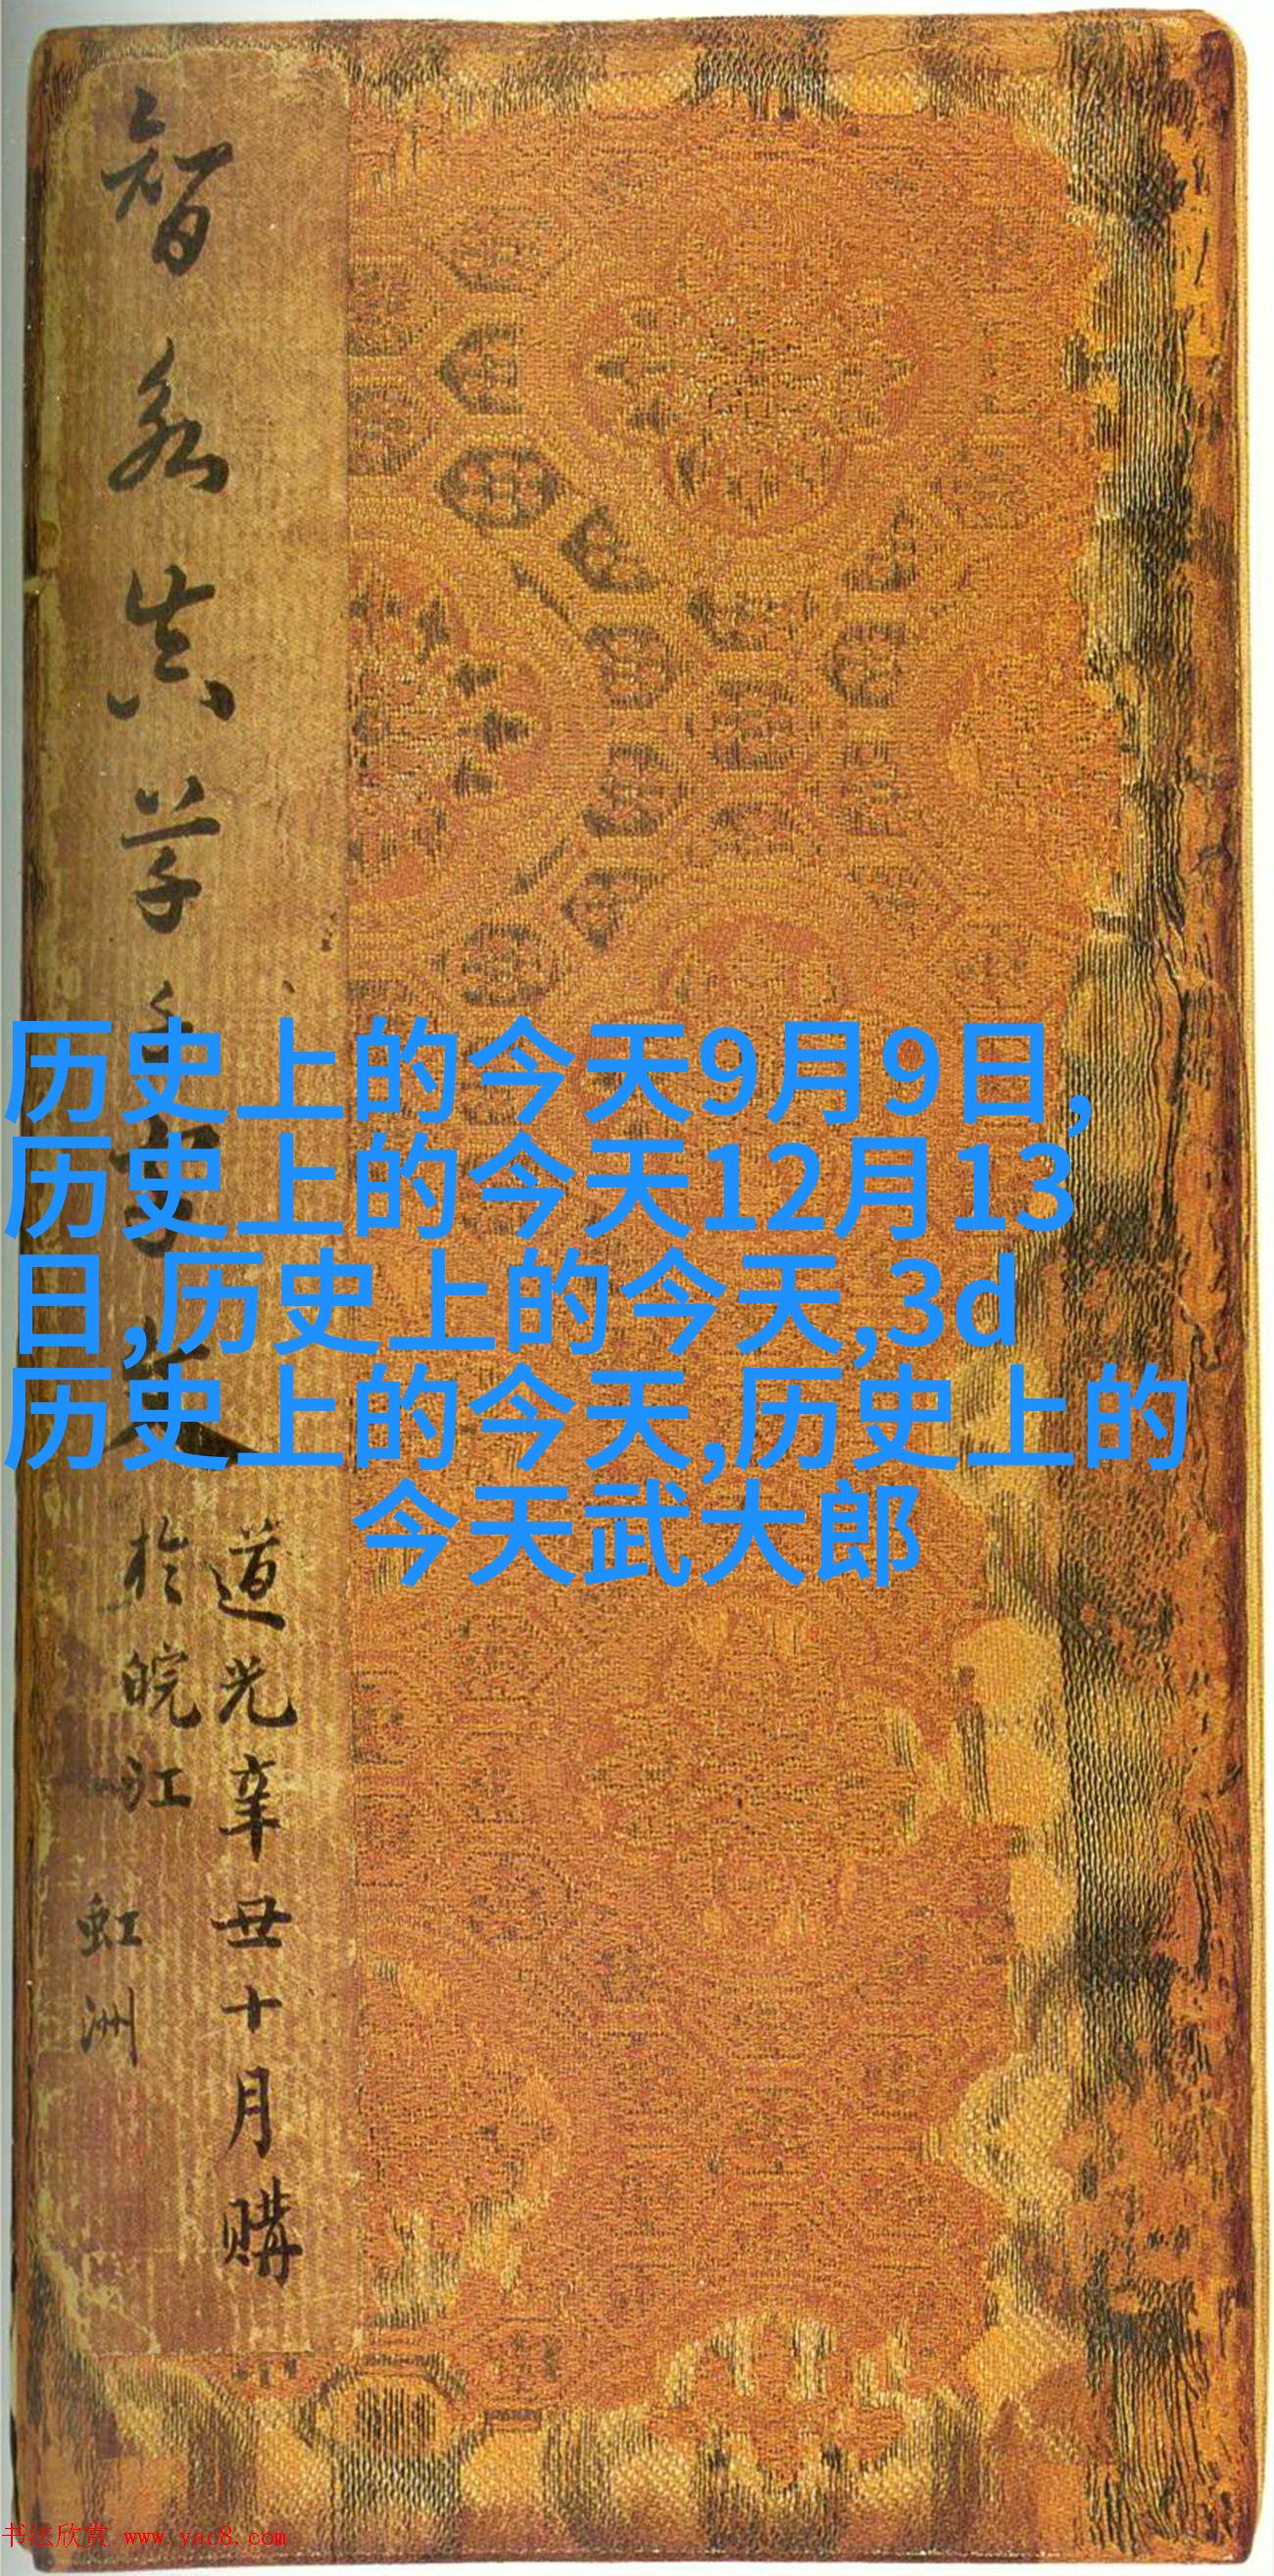 智永真草千字文
道光辛丑十月購
於皖江
虹洲
历史上的今天9月9日,
历史上的今天12月13
日,历史上的今天,3d
历史上的今天,历史上的
今天武大郎
书法欣赏 www.yac8.com